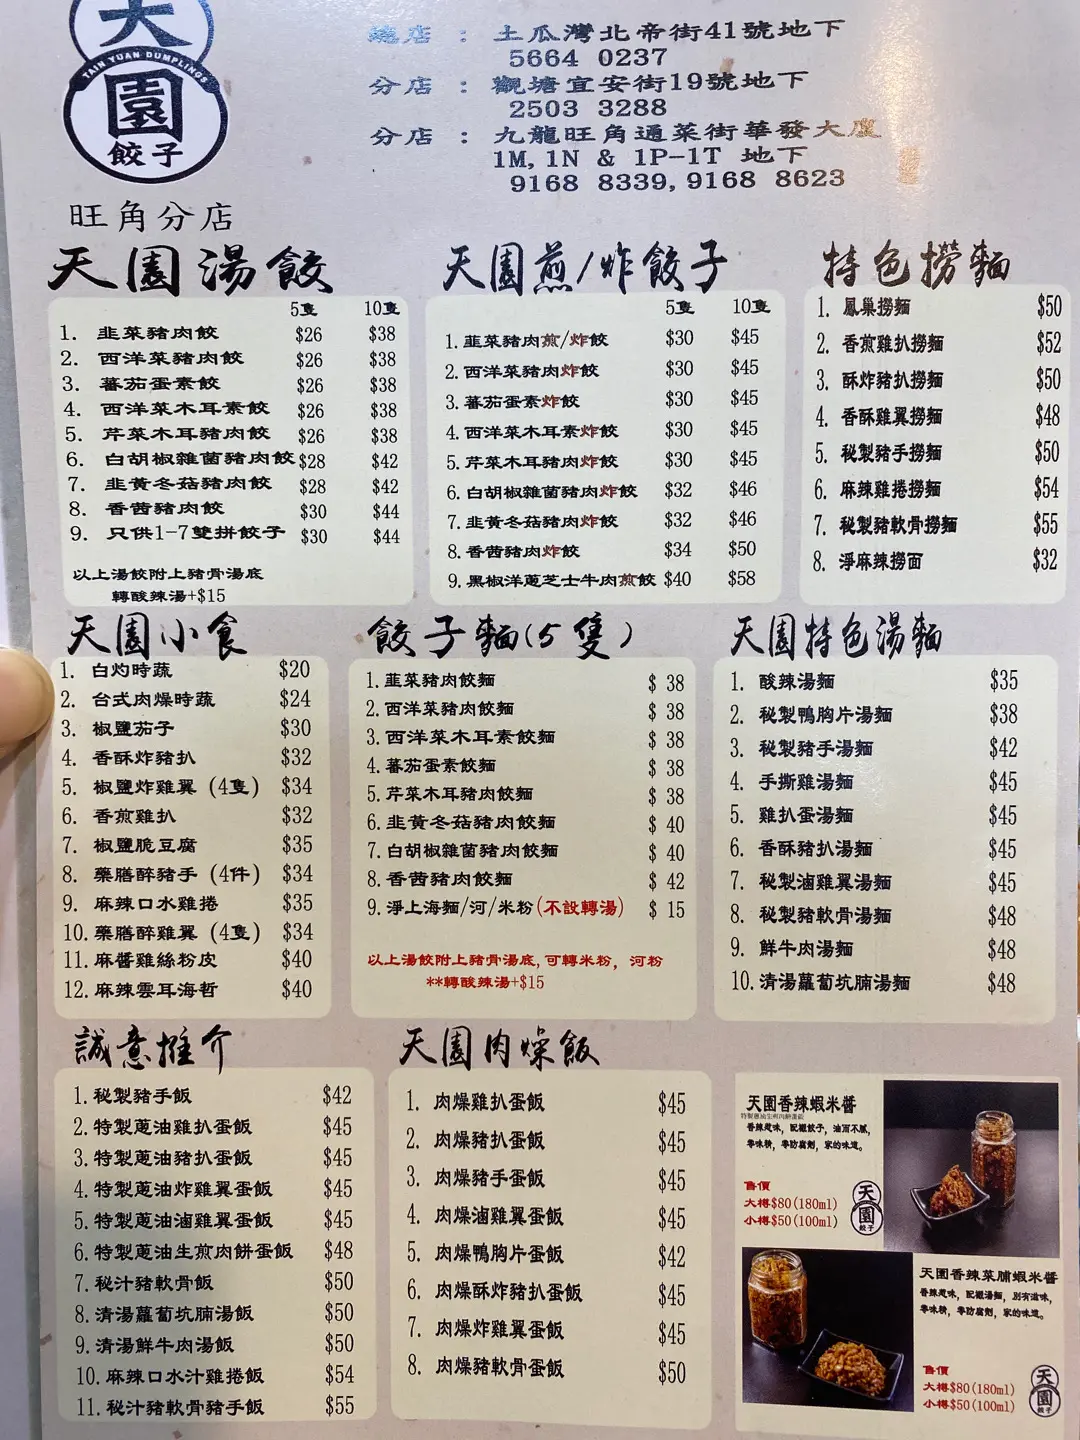 天
TAIN YUAN DUMPLINGS
園
餃子
旺角分店
總店 : 土瓜灣北帝街41號地下
5664 0237
分店 : 觀塘宜安街19號地下
2503 3288
分店 : 九龍旺角通菜街華發大廈
1M,1N & 1P-1T 地下
9168 8339,9168 8623
天園湯餃
5隻 10隻
1. 韭菜豬肉餃 $26 $38
2. 西洋菜豬肉餃 $26 $38
3. 蕃茄蛋素餃 $26 $38
4. 西洋菜木耳素餃 $26 $38
5. 芹菜木耳豬肉餃 $26 $38
6. 白胡椒雜菌豬肉餃 $28 $42
7. 韭黃冬菇豬肉餃 $28 $42
8. 香茜豬肉餃 $30 $44
9. 只供1-7雙拼餃子 $30 $44
以上湯餃附上豬骨湯底
轉酸辣湯+$15
天園煎/炸餃子
5隻 10隻
1.韭菜豬肉煎/炸餃 $30 $45
2.西洋菜豬肉炸餃 $30 $45
3.蕃茄蛋素炸餃 $30 $45
4.西洋菜木耳素炸餃 $30 $45
5.芹菜木耳豬肉炸餃 $30 $45
6.白胡椒雜菌豬肉炸餃 $32 $46
7.韭黃冬菇豬肉炸餃 $32 $46
8.香茜豬肉炸餃 $34 $50
9.黑椒洋蔥芝士牛肉煎餃 $40 $58
特色撈麵
1. 鳳巢撈麵 $50
2. 香煎雞扒撈麵 $52
3. 酥炸豬扒撈麵 $50
4. 香酥雞翼撈麵 $48
5. 秘製豬手撈麵 $50
6. 麻辣雞捲撈麵 $54
7. 秘製豬軟骨撈麵 $55
8. 淨麻辣撈面 $32
天園小食
1. 白灼時蔬 $20
2. 台式肉燥時蔬 $24
3. 椒鹽茄子 $30
4. 香酥炸豬扒 $32
5. 椒鹽炸雞翼 (4隻) $34
6. 香煎雞扒 $32
7. 椒鹽脆豆腐 $35
8. 藥膳醉豬手 (4件) $34
9. 麻辣口水雞捲 $35
10.藥膳醉雞翼 (4隻) $34
11.麻醬雞絲粉皮 $40
12.麻辣雲耳海哲 $40
餃子麵(5隻)
1.韮菜豬肉餃麵 $ 38
2.西洋菜豬肉餃麵 $ 38
3.西洋菜木耳素餃麵 $ 38
4.蕃茄蛋素餃麵 $ 38
5.芹菜木耳豬肉餃麵 $ 38
6.韭黃冬菇豬肉餃麵 $ 40
7.白胡椒雜菌豬肉餃麵 $ 40
8.香茜豬肉餃麵 $ 42
9.淨上海麵/河/米粉(不設轉湯) $ 15
以上湯餃附上豬骨湯底,可轉米粉, 河粉
**轉酸辣湯+$15
天園特色湯麵
1. 酸辣湯麵 $35
2. 秘製鴨胸片湯麵 $38
3. 秘製豬手湯麵 $42
4. 手撕雞湯麵 $45
5. 雞扒蛋湯麵 $45
6. 香酥豬扒湯麵 $45
7. 秘製滷雞翼湯麵 $45
8. 秘製豬軟骨湯麵 $48
9. 鮮牛肉湯麵 $48
10.清湯蘿蔔坑腩湯麵 $48
誠意推介
1.秘製豬手飯 $42
2.特製蔥油雞扒蛋飯 $45
3.特製蔥油豬扒蛋飯 $45
4.特製蔥油炸雞翼蛋飯 $45
5.特製蔥油滷雞翼蛋飯 $45
6.特製蔥油生煎肉餅蛋飯 $48
7.秘汁豬軟骨飯 $50
8.清湯蘿蔔坑腩湯飯 $50
9.清湯鮮牛肉湯飯 $50
10.麻辣口水汁雞捲飯 $54
11.秘汁豬軟骨豬手飯 $55
天園肉燥飯
1. 肉燥雞扒蛋飯 $45
2. 肉燥豬扒蛋飯 $45
3. 肉燥豬手蛋飯 $45
4. 肉燥滷雞翼蛋飯 $45
5. 肉燥鴨胸片蛋飯 $42
6. 肉燥酥炸豬扒蛋飯 $45
7. 肉燥炸雞翼蛋飯 $45
8. 肉燥豬軟骨蛋飯 $50
天園香辣蝦米醬
香辣惹味, 配襯餃子, 油而不膩,
零味精, 零防腐劑, 家的味道。
售價
大樽$80(180ml)
小樽$50(100ml)
天園餃子
天園香辣菜脯蝦米醬
香辣惹味, 配襯湯麵, 別有滋味,
零味精, 零防腐劑, 家的味道。
售價
大樽$80(180ml)
小樽$50(100ml)
天園餃子